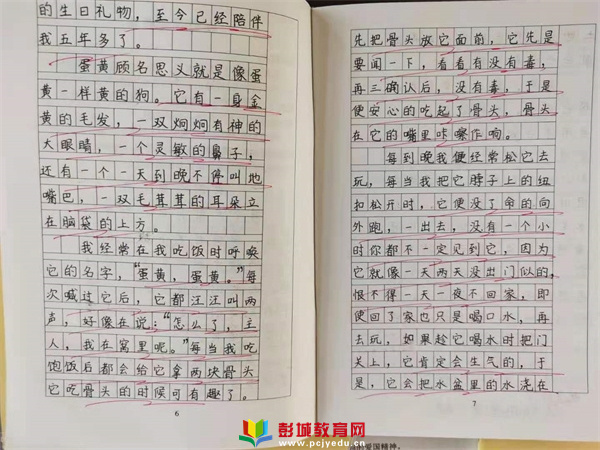 的生日礼物，至今已经陪伴
我五年多了。
蛋黄顾名思义就是像蛋
黄一样黄的狗。它有一身金
黄的毛发，一双炯炯有神的
大眼睛，一个灵敏的鼻子，
还有一个一天到晚不停叫地
嘴巴，一双毛茸茸的耳朵立
在脑袋的上方。
我经常在我吃饭时呼唤
它的名字，“蛋黄，蛋黄。”每
次喊过它后，它都汪汪叫两
声，好像在说：“怎么了，主
人，我在窝里呢。”每当我吃
饱饭后都会给它拿两块骨头
它吃骨头的时候可有趣了。
6
先把骨头放它面前，它先是
要闻一下，看看有没有毒，
再三确认后，没有毒，于是
便安心的吃起了骨头，骨头
在它的嘴里咔嚓作响。
每到晚我便经常松它去
玩，每当我把它脖子上的纽
扣松开时，它便没了命的向
外跑，一出去，没有一个小
时你都不一定见到它，因为
它就像一天两天没出门似的，
恨不得一天一夜不回家，即
使回了家也只是喝口水，再
去玩，如果趁它喝水时把门
关上，它肯定会生气的，于
是，它会把水盆里的水浇在
7
彭城教育网
www.pcjyedu.cn
的爱国精神，